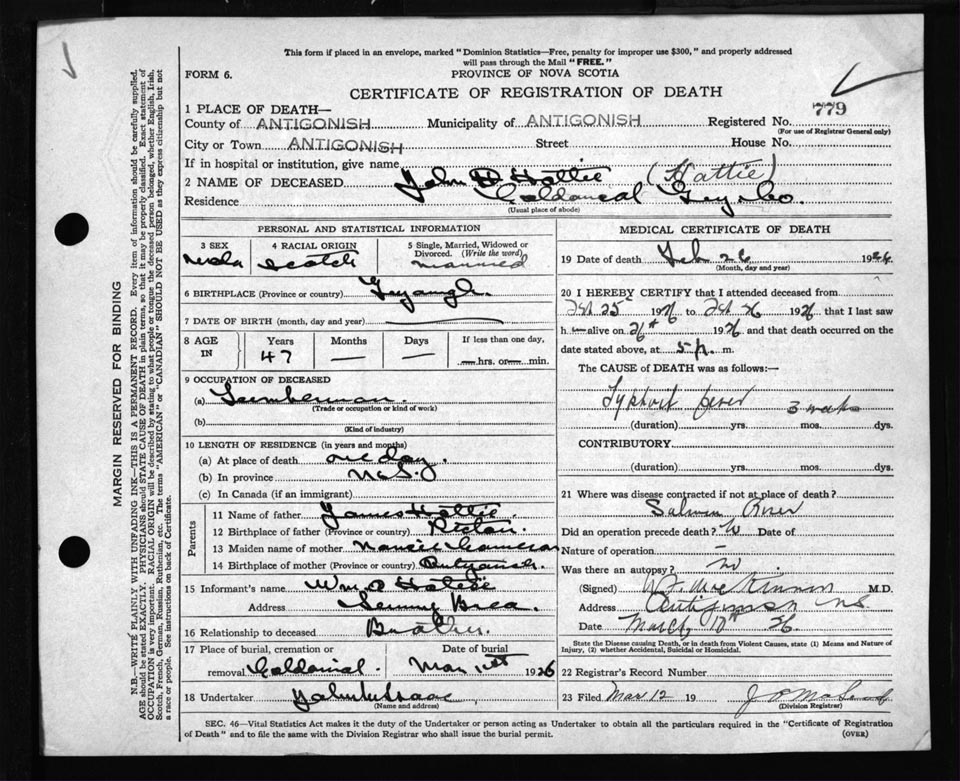 This form if placed in an envelope, marked "Dominion Statistics—Free, penalty for improper use $300," and properly addressed
will pass through the Mail "FREE."
FORM 6.
PROVINCE OF NOVA SCOTIA
CERTIFICATE OF REGISTRATION OF DEATH
779
1 PLACE OF DEATH—
County of ANTIGONISH Municipality of ANTIGONISH Registered No.
(For use of Registrar General only)
City or Town ANTIGONISH Street House No.
If in hospital or institution, give name
2 NAME OF DECEASED John D Hattie (Hattie)
Residence Guy Co.
(Usual place of abode)
PERSONAL AND STATISTICAL INFORMATION
3 SEX 4 RACIAL ORIGIN 5 Single, Married, Widowed or
Divorced. (Write the word)
male Scotch married
6 BIRTHPLACE (Province or country)
7 DATE OF BIRTH (month, day and year)
8 AGE IN Years Months Days If less than one day,
47 — — hrs. or min.
9 OCCUPATION OF DECEASED
(a) Lumberman
(Trade or occupation or kind of work)
(b)
(Kind of industry)
10 LENGTH OF RESIDENCE (in years and months)
(a) At place of death one day.
(b) In province N.S.
(c) In Canada (if an immigrant)
Parents
11 Name of father James Hattie
12 Birthplace of father (Province or country) Pictou
13 Maiden name of mother Cameron
14 Birthplace of mother (Province or country)
15 Informant's name Wm Hattie
Address Brea.
16 Relationship to deceased Brother.
17 Place of burial, cremation or Date of burial
removal Mar 1st 1926
18 Undertaker
(Name and address)
MEDICAL CERTIFICATE OF DEATH
19 Date of death Feb 26 1926
(Month, day and year)
20 I HEREBY CERTIFY that I attended deceased from
Feb 25 1926 to Feb 26 1926 that I last saw
h alive on 26th 1926 and that death occurred on
date stated above, at 5 p. m.
The CAUSE of DEATH was as follows:—
Typhoid fever 3 weeks
(duration) yrs. mos. dys.
CONTRIBUTORY
(duration) yrs. mos. dys.
21 Where was disease contracted if not at place of death?
Salmon River
Did an operation precede death? Date of
Nature of operation —
Was there an autopsy? no
(Signed) W. F. MacKinnon M.D.
Address Antigonish N.S.
Date March 10th 26
State the Disease causing Death, or in death from Violent Causes, state (1) Means and Nature of
Injury, (2) whether Accidental, Suicidal or Homicidal.
22 Registrar's Record Number
23 Filed Mar 12 19
(Division Registrar)
SEC. 46—Vital Statistics Act makes it the duty of the Undertaker or person acting as Undertaker to obtain all the particulars required in the "Certificate of Registration
of Death" and to file the same with the Division Registrar who shall issue the burial permit. (OVER)
MARGIN RESERVED FOR BINDING
N.B.—WRITE PLAINLY WITH UNFADING INK—THIS IS A PERMANENT RECORD. Every item of information should be carefully supplied.
AGE should be stated EXACTLY. PHYSICIANS should STATE CAUSE OF DEATH in plain terms, so that it may be properly classified. Exact statement of
OCCUPATION is very important. RACIAL ORIGIN will be described by stating to what people or tongue the deceased person belonged, whether English, Irish,
Scotch, French, German, Russian, Ruthenian, etc. The terms "AMERICAN" or "CANADIAN" SHOULD NOT BE USED as they express citizenship but not
a race or people. See instructions on back of Certificate.